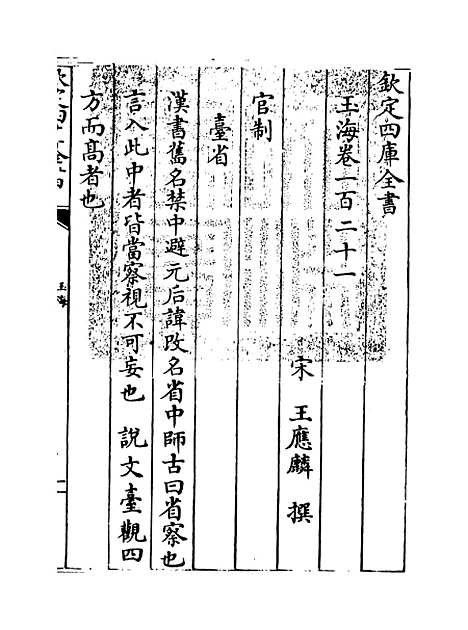 欽定四庫全書
玉海卷一百二十一
宋 王應麟 撰
官制
臺省
漢書舊名禁中避元后諱改名省中師古曰省察也
言入此中者皆當察視不可妄也 說文臺觀四
方而髙者也
玉海